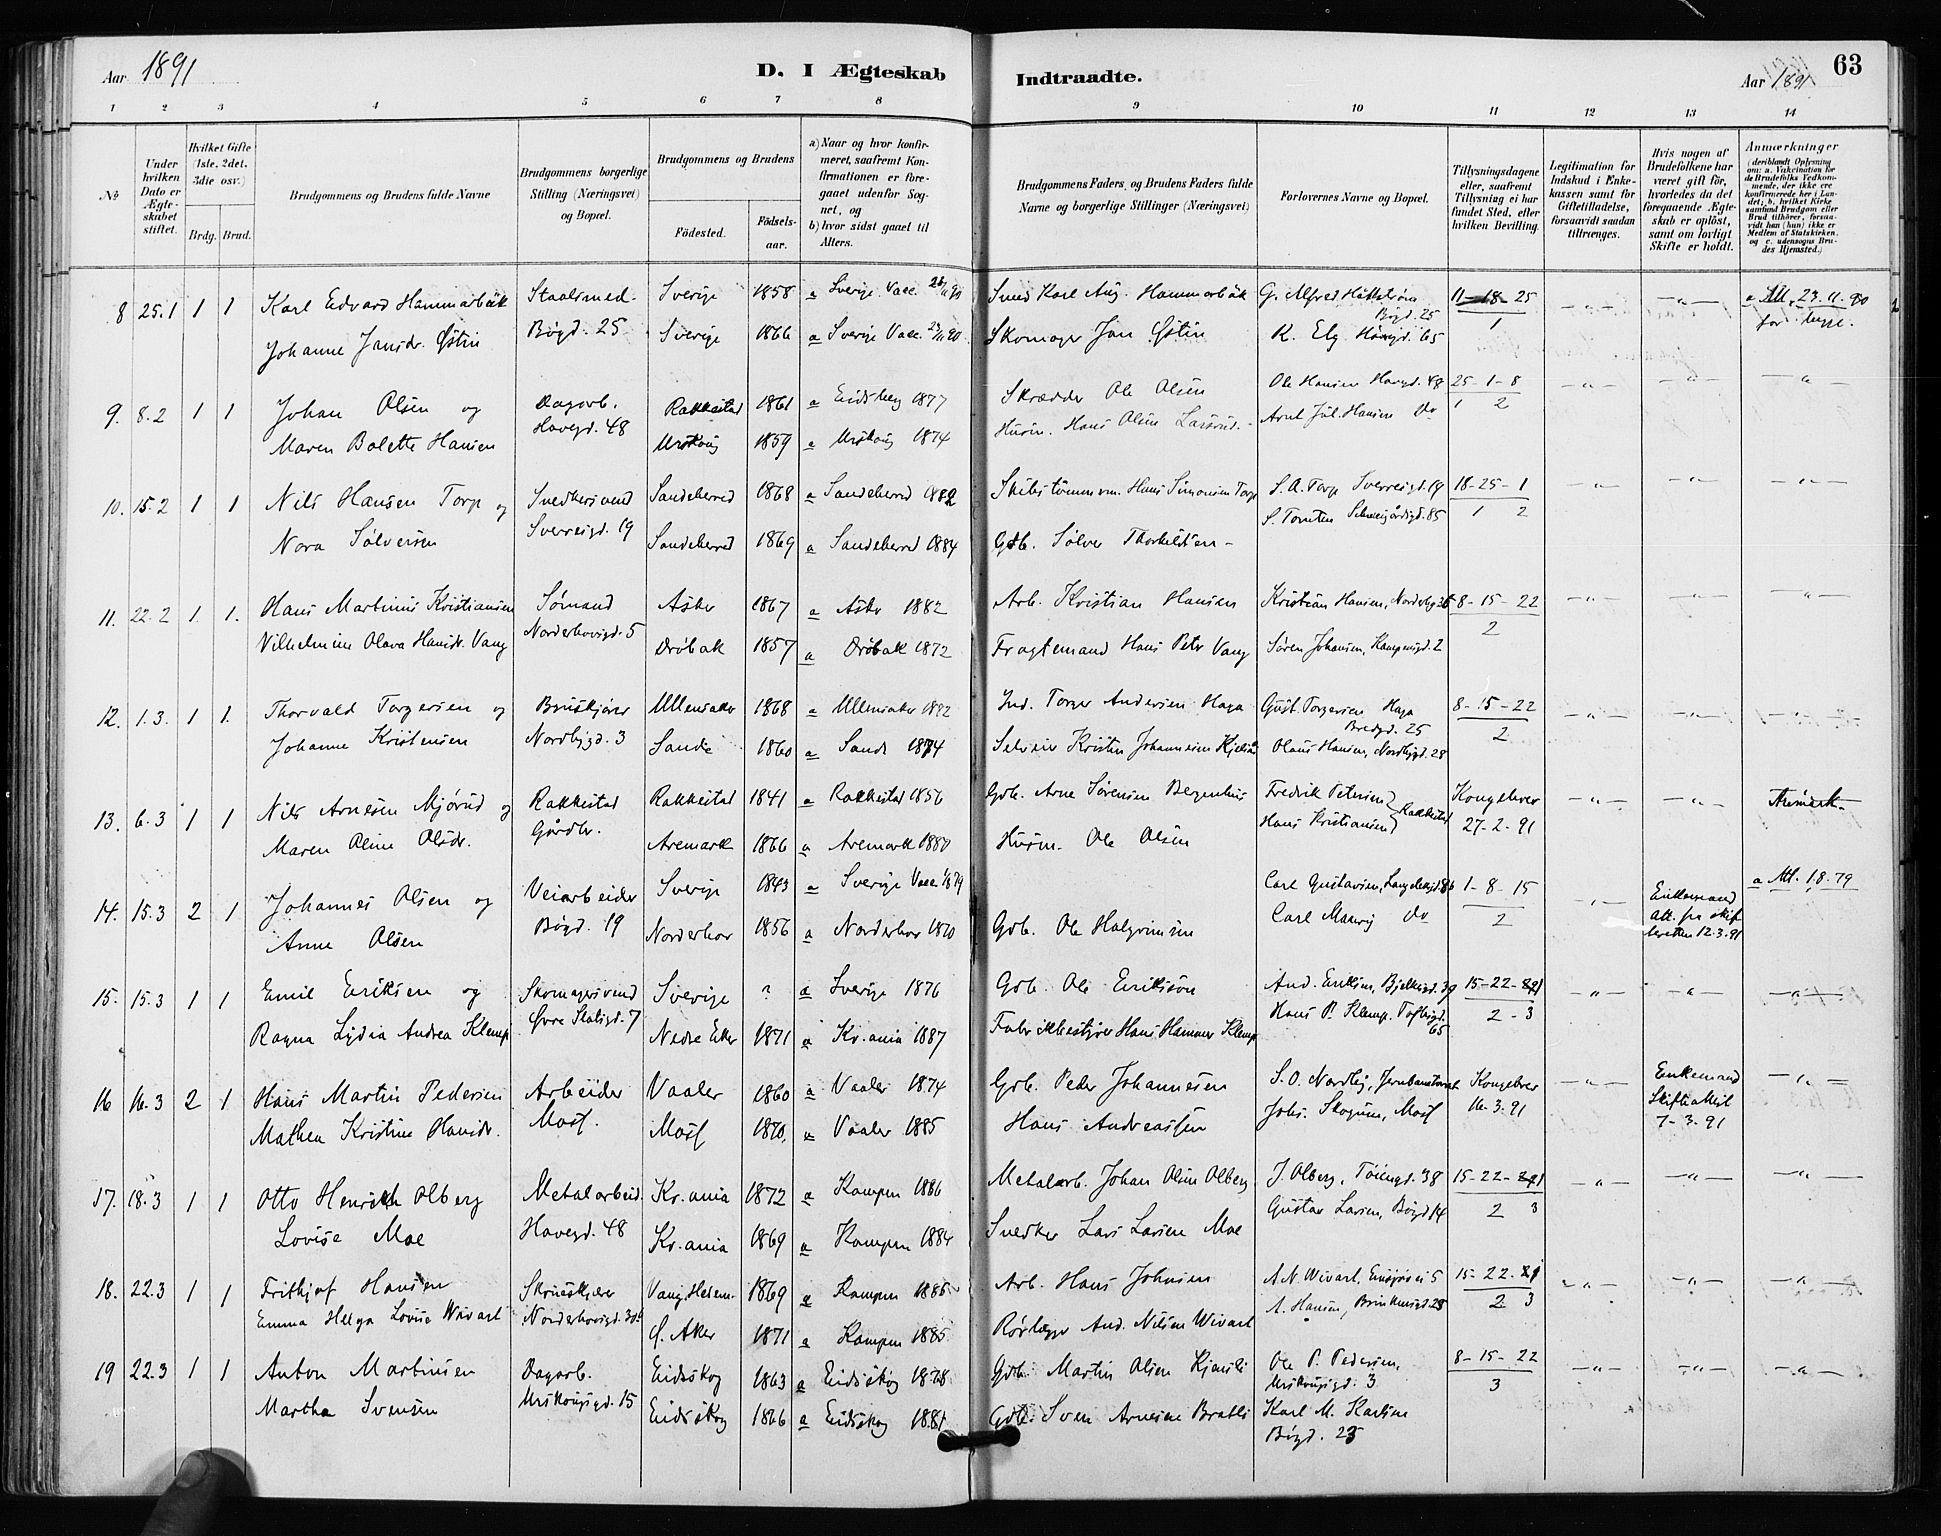 Aar 1891
D. I Ægteskab Indtraadte.
Aar 1891
63
1 2 3 4 5 6 7 8 9 10 11 12 13 14
№
Under hvilken Dato er Ægteskabet stiftet.
Hvilket Gifte (1ste, 2det, 3die osv.)
Brdg. Brud.
Brudgommens og Brudens fulde Navne
Brudgommens borgerlige Stilling (Næringsvei) og Bopæl.
Brudgommens og Brudens
Fødested.
Fødselsaar.
a) Naar og hvor konfirmeret, saafremt Konfirmationen er foregaaet udenfor Sognet, og
b) hvor sidst gaaet til Alters.
Brudgommens Faders, og Brudens Faders fulde Navne og borgerlige Stillinger (Næringsvei)
Forlovernes Navne og Bopæl.
Tillysningsdagene eller, saafremt Tillysning ei har fundet Sted, efter hvilken Bevilling.
Legitimation for Indskud i Enkekassen samt for Giftetilladelse, forsaavidt saadan tiltrænges.
Hvis nogen af Brudefolkene har været gift før, hvorledes da det foregaaende Ægteskab er opløst, samt om lovligt Skifte er holdt.
Anmærkninger
(deriblandt Oplysning om: a. Vakcination for de Brudefolks Vedkommende, der ikke ere konfirmerede her i Landet; b. hvilket Kirkesamfund Brudgom eller Brud tilhører, forsaavidt han (hun) ikke er Medlem af Statskirken, og c. udensogns Brudes Hjemsted.)
8 25.1 1 1 Karl Edvard Hammarbäk Staalsmed. Sverige 1858 a Sverige Vacc. Smed Karl Aug. Hammarbäk G. Alfred Hättström 11-18-25 a Att. 23.11.90
Bøgd. 25
Johanne Jansdr. Östin Bøgd. 25 Sverige 1866 a Sverige Vacc. Skomager Jan Östin K. Elg 65 1 for begge.
9. 8.2 1 1 Johan Olsen og Dagarb. Rakkestad 1861 a Eidsberg 1877 Skrædder Ole Olsen Ole Hansen Haveg. 48 25-1-8
Maren Bolette Hansen Havegd. 48 Urskoug 1859 a Urskoug 1874 Husm. Hans Olsen Arnt Jul. Hansen do 1 2
10. 15.2 1 1 Nils Hansen Torp og Snedkersvend Sandeherred 1868 a Sandeherred 1882 Skibstømmerm. Hans Simonsen Torp S. A. Torp Sverresgd. 19 18-25-1
Nora Sølversen Sverresgd. 19 Sandeherred 1869 a Sandeherred 1884 Gdb. Sølver Thorkildsen S. Tomten Schweigårdsgd. 85 1 2
11. 22.2 1. 1. Hans Martinius Kristiansen Sømand Asker 1867 a Asker 1882 Arb. Kristian Hansen Kristian Hansen, 8-15-22
Vilhelmine Olava Hansdr. Vang Norderhovsgd. 5 Drøbak 1857 a Drøbak 1872 Fragtemand Hans Petr Vang Søren Johansen, Kampensgd. 2 2
12. 1.3. 1 1. Thorvald Torgersen og Bruskjører Ullensaker 1868 a Ullensaker 1882 Ind. Torger Andersen Haga Gust. Torgersen Haga 8-15-22
Bredgd. 25
Johanne Kristensen Nordbygd. 3 Sande 1860 a Sande 1874 Selveier Kristen Johannesen Olaus Hansen, Nordbygd. 28 2
13. 6.3 1 1 Nils Arnesen Mjørud og Rakkestad Rakkestad 1841 a Rakkestad 1856 Gdb. Arne Sørensen Bergenhus Fredrik Petersen Rakkestad Kongebrev Aremark
Maren Oline Olsdr. Gårdbr. Aremark 1866 a Aremark 1880 Husm. Ole Olsen Hans Kristiansen 27-2-91
14. 15.3 2 1 Johannes Olsen og Veiarbeider Sverige 1843 a Sverige Vacc. 1/8 79 Carl Gustavsen, 1-8-15 Enkemand a Att. 1.8.79
Anne Olsen Bøgd. 19 Norderhov 1856 a Norderhov 1870 Gdb. Ole Halgrimsen Carl do 2 att. fra skifteretten 12.3.91
15. 15.3 1 1 Emil Eriksen og Skomagersvend Sverige ? a Sverige 1876 Gdb. Ole Eriksson And. Eriksen, 15-22-1
Ragna Lydia Andrea Klemp Øvre Slotsgd. 7 Nedre Eker 1871 a Kr.ania 1887 Fabrikbestyrer Hans Hammer Klemp Hans P. Klemp, Toftesgd. 65 2-3
16 16.3 2 1 Hans Martin Pedersen Arbeider Vaaler 1860 a Vaaler 1874 Gdb. Peder Johannesen S. O. Nordby, Kongebrev Enkemand
Mathea Kristine Hansdr. Moss. Moss 1870, a Vaaler 1885 Hans Andreassen Johs. Skogum, Moss 16.3.91 Skifteattest 7-3-91
17. 18.3 1 1 Otto Henrik Olberg Metalarbeid. Kr.ania 1872 a Kampen 1886 Metalarb. Johan Olsen Olberg J. Olberg, Tøiengd. 38 15-22-1
Lovise Moe Havegd. 48 Kr.ania 1869 a Kampen 1884 Snedker Lars Larsen Moe Gustav Larsen, Bøgd. 14 2 3
18. 22.3 1 1 Frithjof Hansen Skrueskjærer Vang, Hedem. 1869 a Kampen 1885 Arb. Hans Johnsen A. N. Wivart, Ensjøvei 5 15-22-1
Emma Helga Lovise Wivart Norderhovsgd. Ø. Aker 1871 a Kampen 1885 Rørlægger And. Nilsen Wivart A. Hansen, Brinkensgd. 28 2 3
19 22.3 1 1 Anton Martinsen Dagarb. Eidskog 1863 a Eidskog 1878 Gdb. Martin Olsen Ole P. Pedersen, 8-15-22
Urskougsgd. 3
Martha Svensen Urskougsgd. 15 Eidskog 1866 a Eidskog 1881 Gdb. Sven Arnesen Bratli Karl M. Karlsen 3
Bøgd. 25